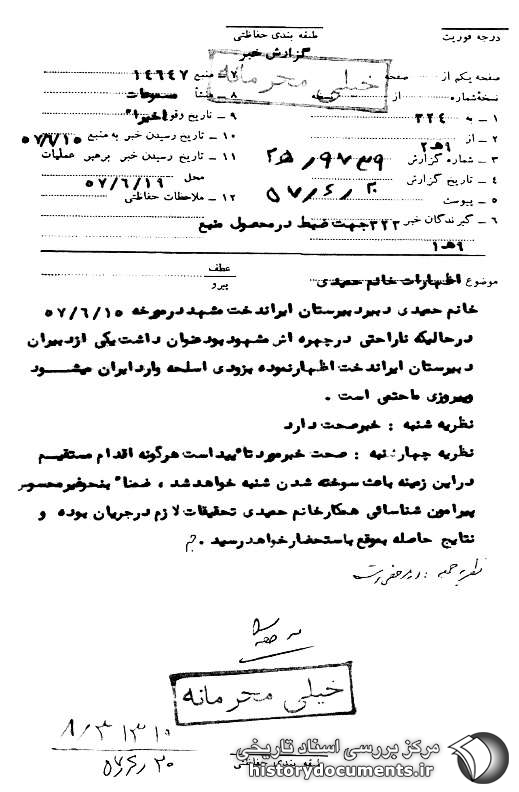 درجه فوریت
طبقه بندی حفاظتی
گزارش خبر
خیلی محرمانه
صفحه یکم از صفحه
نسخه شماره از نسخه
۱ ـ به ۳۲۴
۲ ـ از ۹هـ۲
۳ ـ شماره گزارش
۴ ـ تاریخ گزارش ۵۷/۶/۲۰
۵ ـ پیوست
۶ ـ گیرندگان خبر ۳۲۲ جهت ضبط در محصول منبع
۹هـ۱
۷ ـ منبع ۱۴۶۴۷
۸ ـ منشأ مسموعات
۹ ـ تاریخ وقوع اخیرا"
۱۰ ـ تاریخ رسیدن خبر به منبع ۵۷/۷/۱۵
۱۱ ـ تاریخ رسیدن خبر برهبر عملیات
محل ۵۷/۶/۱۹
۱۲ ـ ملاحظات حفاظتی
موضوع اظهارات خانم حمیدی
عطف
پیرو
خانم حمیدی دبیر دبیرستان ایراندخت مشهد در مورخه ۵۷/۶/۱۵
در حالیکه ناراحتی در چهره اش مشهود بود عنوان داشت یکی از دبیران
دبیرستان ایراندخت اظهار نموده بزودی اسلحه وارد ایران میشود
و پیروزی ما حتمی است .
نظریه شنبه : خبر صحت دارد
نظریه چهارشنبه : صحت خبر مورد تائید است هرگونه اقدام مستقیم
در این زمینه باعث سوخته شدن شنبه خواهد شد ، ضمنا" بنحو غیر محسوس
پیرامون شناسائی همکار خانم حمیدی تحقیقات لازم در جریان بوده و
نتایج حاصله بموقع باستحضار خواهد رسید . ج
نظریه جمعه :
خیلی محرمانه
طبقه بندی حفاظتی
مرکز بررسی اسناد تاریخی
historydocuments.ir